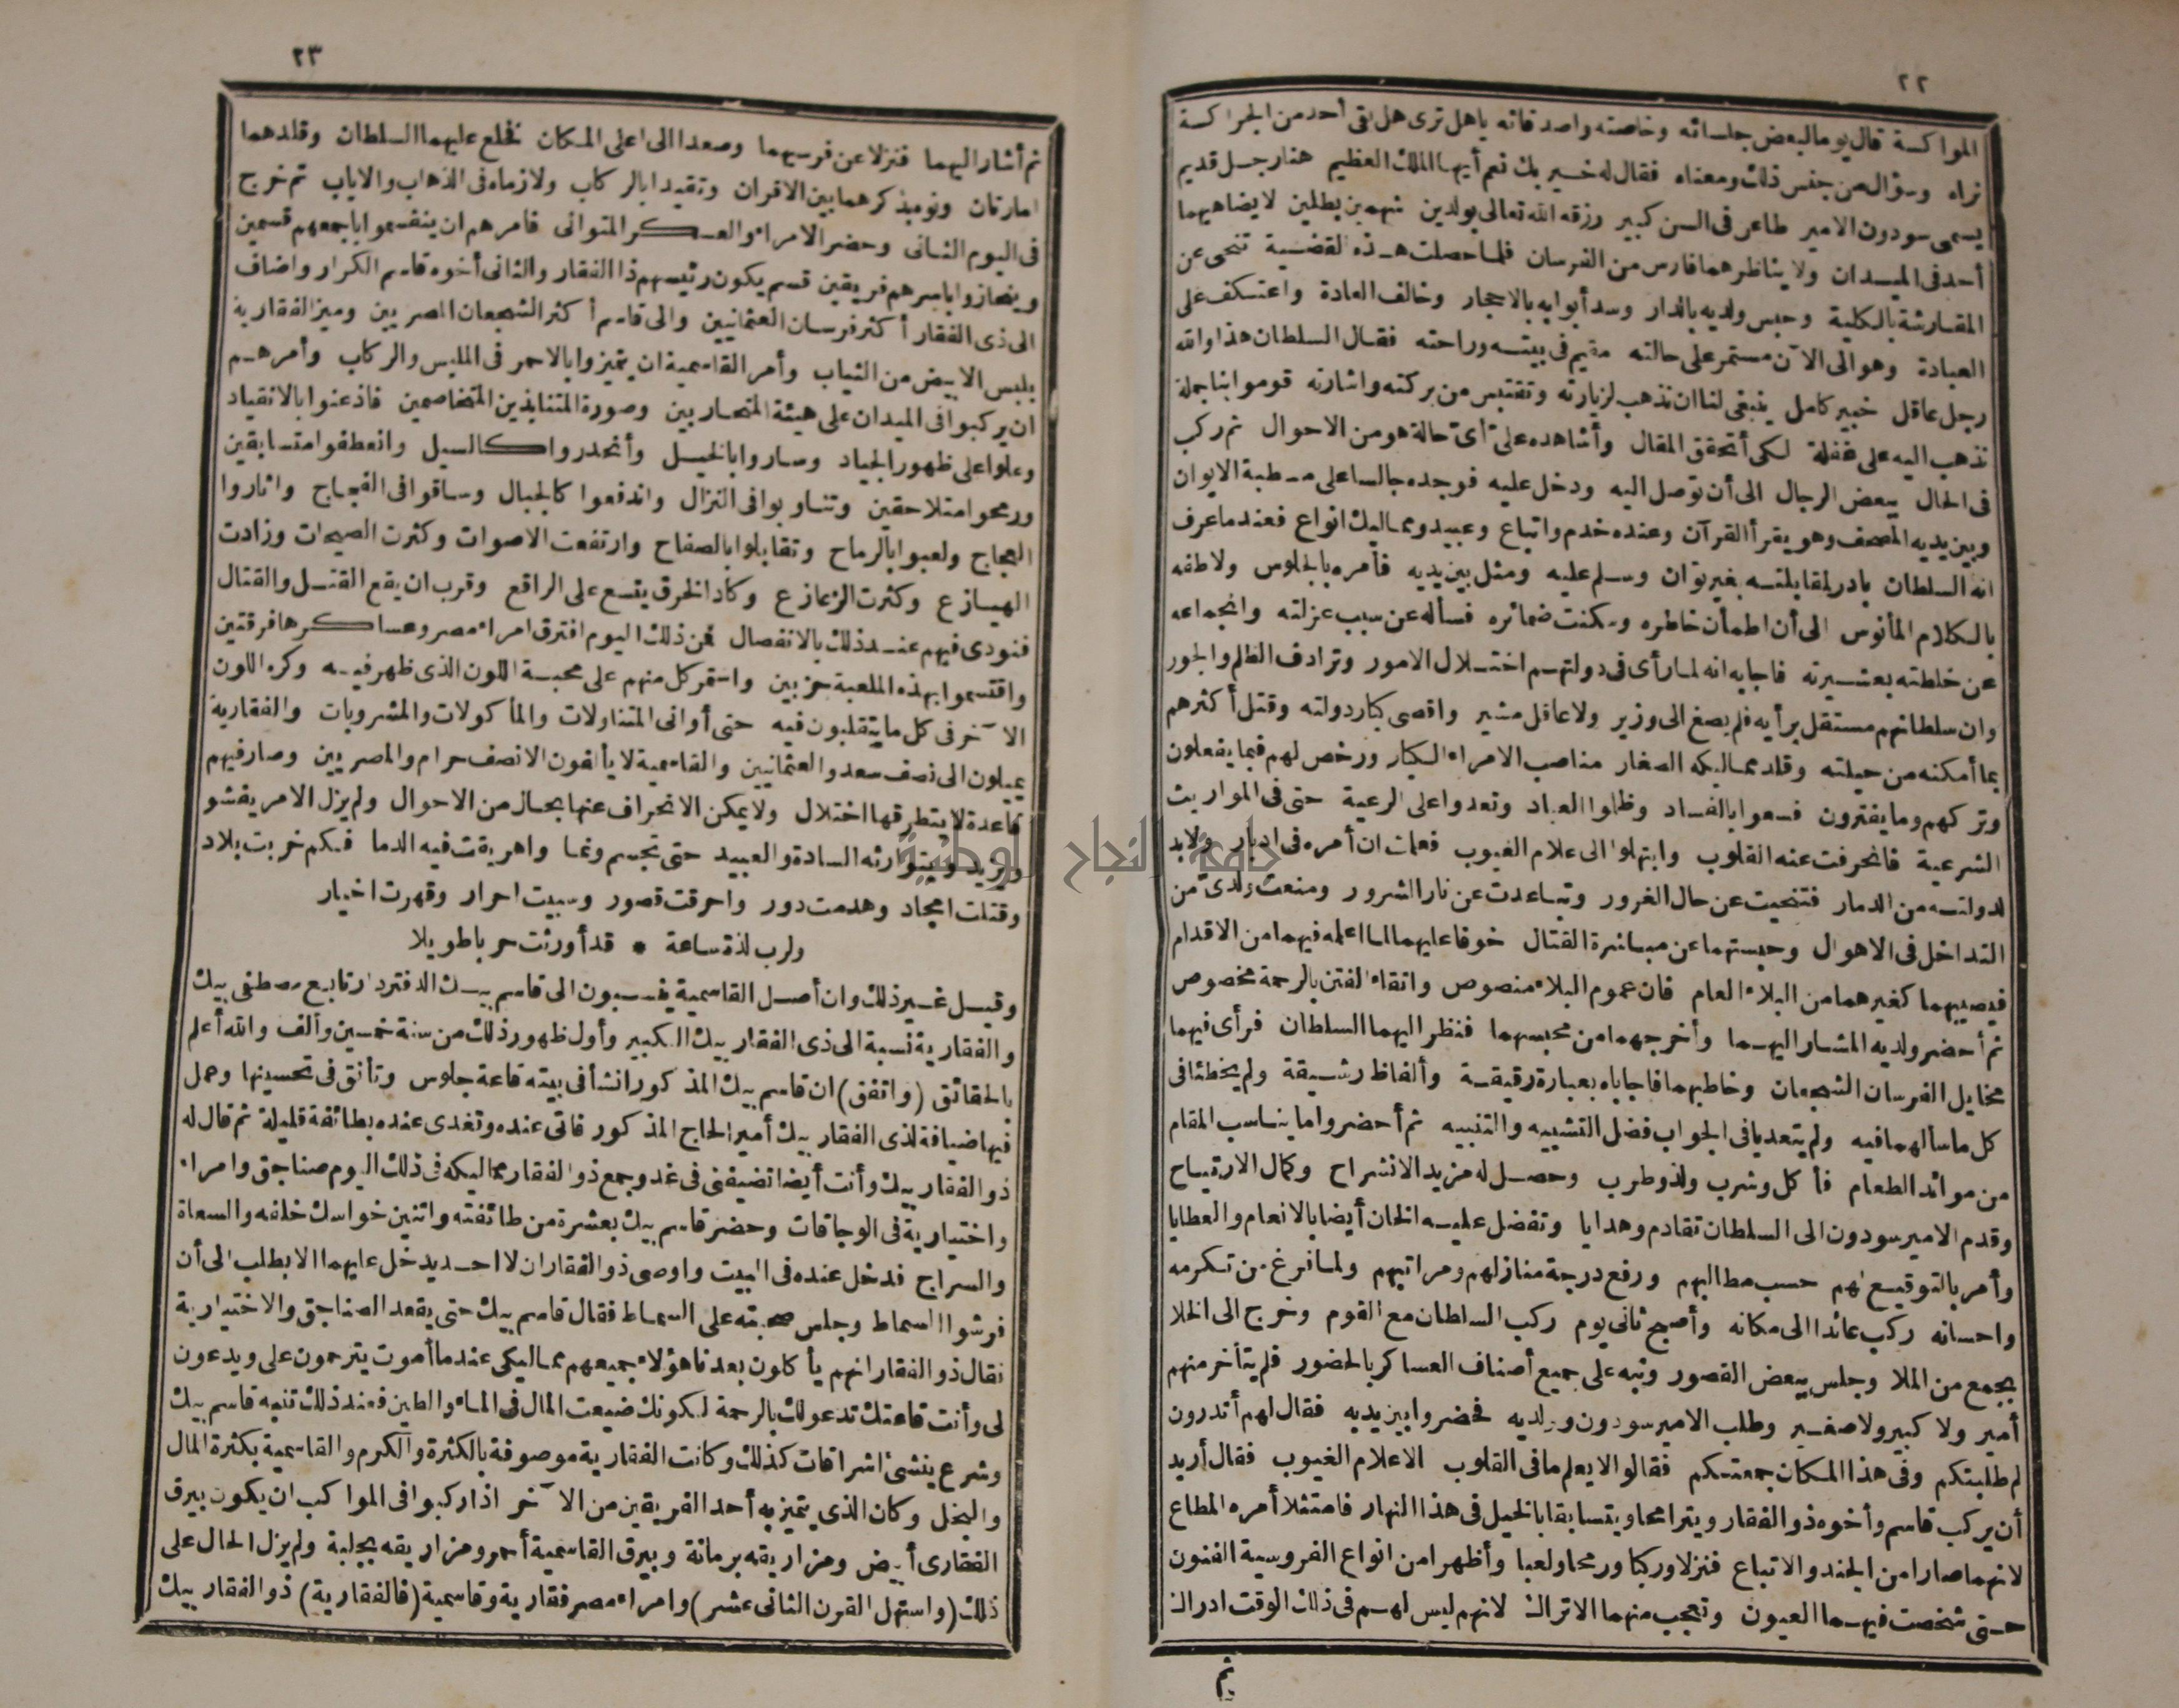 ٢٢
المواكسة قال يوما لبعض جلسائه وخاصته واصدقائه ياهل ترى هل بقى أحد من الجراكسة
نراه وسؤال من جنس ذلك ومعناه فقال له خير بك نعم أيها الملك العظيم هنا رجل قديم
يسمى سودون الامير طاعن فى السن كبير رزقه الله تعالى بولدين شهمين بطلين لا يضاهيهما
أحد فى الميدان ولا يناظرهما فارس من الفرسان فلما حصلت هذه القضية تنحى عن
المقارشة بالكلية وحبس ولديه بالدار وسد أبوابه بالاحجار وخالف العادة واعتكف على
العبادة وهو الى الآن مستمر على حالته مقيم فى بيته وراحته فقال السلطان هذا والله
رجل عاقل خبير كامل ينبغى لنا ان نذهب لزيارته ونقتبس من بركته واشارته قوموا بنا جملة
نذهب اليه على غفلة لكى أتحقق المقال وأشاهده على أى حالة هو من الاحوال ثم ركب
فى الحال ببعض الرجال الى أن توصل اليه ودخل عليه فوجده جالسا على مسطبة الايوان
وبين يديه المصحف وهو يقرأ القرآن وعنده خدم واتباع وعبيد ومماليك انواع فعندما عرف
انه السلطان بادر لمقابلته بغير توان وسلم عليه ومثل بين يديه فأمره بالجلوس ولاطفه
بالكلام المأنوس الى أن اطمأن خاطره وسكنت ضمائره فسأله عن سبب عزلته وانجماعه
عن خلطته بعشيرته فاجابه انه لما رأى فى دولتهم اختلال الامور وترادف الظلم والجور
وان سلطانهم مستقل برأيه فلم يصغ الى وزير ولا عاقل مشير واقصى كبار دولته وقتل أكثرهم
بما أمكنه من حيلته وقلد مماليكه الصغار مناصب الامراء الكبار ورخص لهم فيما يفعلون
وتركهم وما يفترون فسعوا بالفساد وظلموا العباد وتعدوا على الرعية حتى فى المواريث
الشرعية فانحرفت عنه القلوب وابتهلوا الى علام الغيوب فعلمت ان أمره فى ادبار ولا بد
لدولته من الدمار فتنحيت عن حال الغرور وتباعدت عن نار الشرور ومنعت ولدى من
التداخل فى الاهوال وحبستهما عن مباشرة القتال خوفا عليهما لما اعلمه فيهما من الاقدام
فيصيبهما كغيرهما من البلاء العام فان عموم البلاء منصوص واتقاء الفتن بالرحمة مخصوص
ثم أحضر ولديه المشار اليهما وأخرجهما من محبسهما فنظر اليهما السلطان فرأى فيهما
مخايل الفرسان الشجعان وخاطبهما فاجاباه بعبارة رقيقة وألفاظ رشيقة ولم يخطئا فى
كل ما سألهما فيه ولم يتعديا فى الجواب فضل التشبيه والتنبيه ثم أحضروا ما يناسب المقام
من موائد الطعام فأكل وشرب ولذ وطرب وحصل له مزيد الانشراح وكمال الارتياح
وقدم الامير سودون الى السلطان تقادم وهدايا وتفضل عليه الخان أيضا بالانعام والعطايا
وأمر بالتوقيع لهم حسب مطالبهم ورفع درجة منازلهم ومراتبهم ولما فرغ من تكرمه
واحسانه ركب عائدا الى مكانه وأصبح ثانى يوم ركب السلطان مع القوم وخرج الى الخلا
بجمع من الملا وجلس ببعض القصور ونبه على جميع أصناف العساكر بالحضور فلم يتأخر منهم
أمير ولا كبير ولا صغير وطلب الامير سودون وولديه فحضروا بين يديه فقال لهم أتدرون
لم طلبتكم وفى هذا المكان جمعتكم فقالوا لا يعلم ما فى القلوب الا علام الغيوب فقال أريد
أن يركب قاسم وأخوه ذو الفقار ويترامحا ويتسابقا بالخيل فى هذا النهار فامتثلا أمره المطاع
لانهما صارا من الجند والاتباع فنزلا وركبا ورمحا ولعبا وأظهرا من انواع الفروسية الفنون
حتى شخصت فيهما العيون وتعجب منهما الاتراك لانهم ليس لهم فى ذلك الوقت ادراك
ثم
٢٣
ثم أشار اليهما فنزلا عن فرسيهما وصعدا الى اعلى المكان فخلع عليهما السلطان وقلدهما
امارتان ونوه بذكرهما بين الاقران وتقيدا بالركاب ولازماه فى الذهاب والاياب ثم خرج
فى اليوم الثانى وحضر الامراء والعسكر المتوانى فامرهم ان ينقسموا باجمعهم قسمين
وينحازوا باسرهم فريقين قسم يكون رئيسهم ذا الفقار والثانى أخوه قاسم الكرار واضاف
الى ذى الفقار أكثر فرسان العثمانيين والى قاسم أكثر الشجعان المصريين وميز الفقارية
بلبس الابيض من الثياب وأمر القاسمية ان يتميزوا بالاحمر فى الملبس والركاب وأمرهم
ان يركبوا فى الميدان على هيئة المتحاربين وصورة المتنابذين المتخاصمين فاذعنوا بالانقياد
وعلوا على ظهور الجياد وساروا بالخيل وأنحدروا كالسيل وانعطفوا متسابقين
ورمحوا متلاحقين وتناوبوا فى النزال واندفعوا كالجبال وساقوا فى الفجاج واثاروا
العجاج ولعبوا بالرماح وتقابلوا بالصفاح وارتفعت الاصوات وكثرت الصيحات وزادت
الهيازع وكثرت الزعازع وكاد الخرق يتسع على الراقع وقرب ان يقع القتل والقتال
فنودى فيهم عند ذلك بالانفصال فمن ذلك اليوم افترق امراء مصر وعساكرها فرقتين
واقتسموا بهذه الملعبة حزبين واستمر كل منهم على محبة اللون الذى ظهر فيه وكره اللون
الآخر فى كل ما يتقلبون فيه حتى أوانى المتناولات والمأكولات والمشروبات والفقارية
يميلون الى نصف سعد والعثمانيين والقاسمية لا يألفون الا نصف حرام والمصريين وصار فيهم
قاعدة لا يتطرقها اختلال ولا يمكن الانحراف عنها بحال من الاحوال ولم يزل الامر يفشو
ويزيد ويتوارثه السادة والعبيد حتى تجسم ونما واهريقت فيه الدما فكم خربت بلاد
وقتلت امجاد وهدمت دور واحرقت قصور وسبيت احرار وقهرت اخيار
ولرب لذة ساعة * قد أورثت حربا طويلا
وقيل غير ذلك وان أصل القاسمية ينسبون الى قاسم بيك الدفتردار تابع مصطفى بيك
والفقارية نسبة الى ذى الفقار بيك الكبير وأول ظهور ذلك من سنة خمسين وألف والله أعلم
بالحقائق (واتفق) ان قاسم بيك المذكور انشأ فى بيته قاعة جلوس وتأنق فى تحسينها وعمل
فيها ضيافة لذى الفقار بيك أمير الحاج المذكور فاتى عنده وتغدى عنده بطائفة قليلة ثم قال له
ذو الفقار بيك وأنت أيضا تضيفنى فى غد وجمع ذو الفقار مماليكه فى ذلك اليوم صناجق وامراء
واختيارية فى الوجاقات وحضر قاسم بيك بعشرة من طائفته واثنين خواسك خلفه والسعاة
والسراج فدخل عنده فى البيت واوصى ذو الفقار ان لا احد يدخل عليهما الا بطلب الى أن
فرشوا السماط وجلس صحبته على السماط فقال قاسم بيك حتى يقعد الصناجق والاختيارية
فقال ذو الفقار انهم يأكلون بعدنا هؤلاء جميعهم مماليكى عندما أموت يترحمون على ويدعون
لى وأنت قاعتك تدعو لك بالرحمة لكونك ضيعت المال فى الماء والطين فعند ذلك تنبه قاسم بيك
وشرع ينشئ اشراقات كذلك وكانت الفقارية موصوفة بالكثرة والكرم والقاسمية بكثرة المال
والبخل وكان الذى يتميز به أحد الفريقين من الآخر اذا ركبوا فى المواكب ان يكون بيرق
الفقارى أبيض ومزاريقه برمانة وبيرق القاسمية أحمر ومزاريقه بجلبة ولم يزل الحال على
ذلك (واستهل القرن الثانى عشر) وامراء مصر فقارية وقاسمية (فالفقارية) ذو الفقار بيك
جامعة النجاح الوطنية